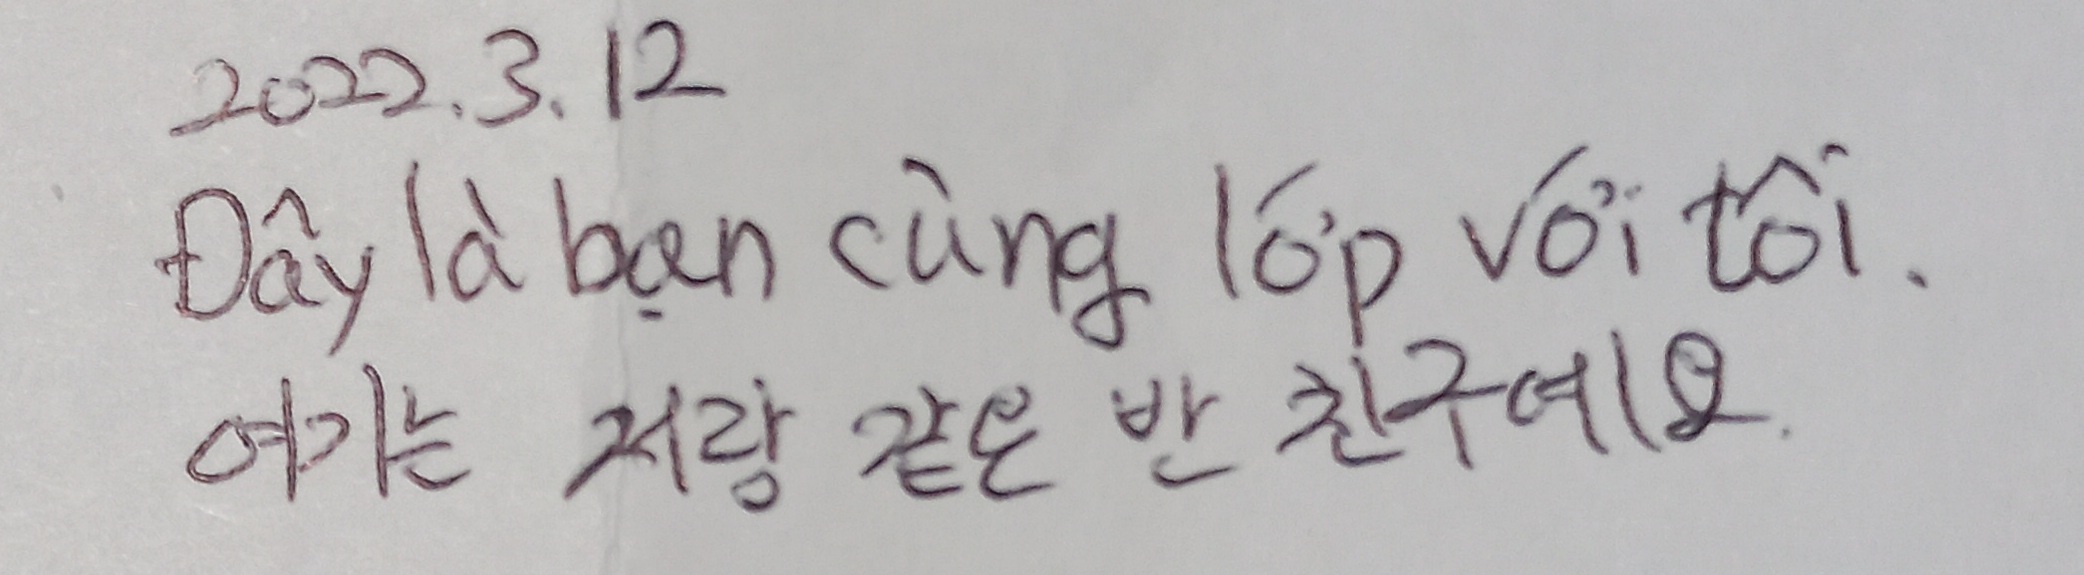 2022.3.12
Đây là bạn cùng lớp với tôi.
여기는 저랑 같은 반 친구예요.